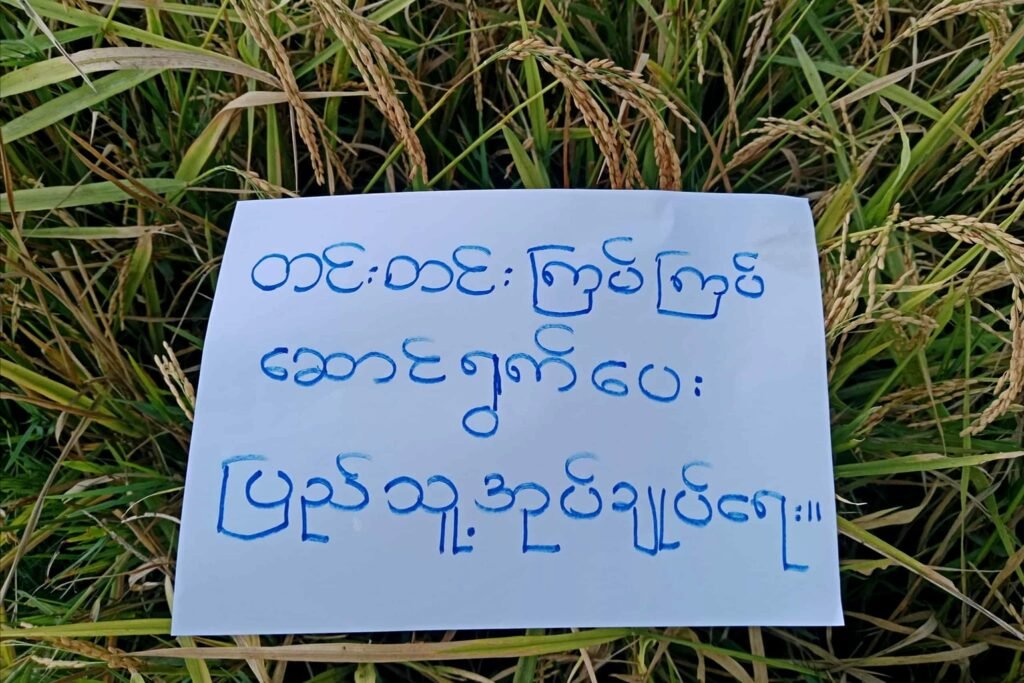 တင်းတင်းကြပ်ကြပ်
ဆောင်ရွက်ပေး
ပြည်သူ့အုပ်ချုပ်ရေး။